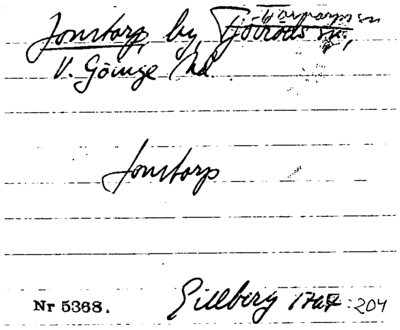 Jonstorp, by, Tjörröds sn.,
V. Göinge hd
Jonstorp
Nr 5368.
Gillberg 1767 204